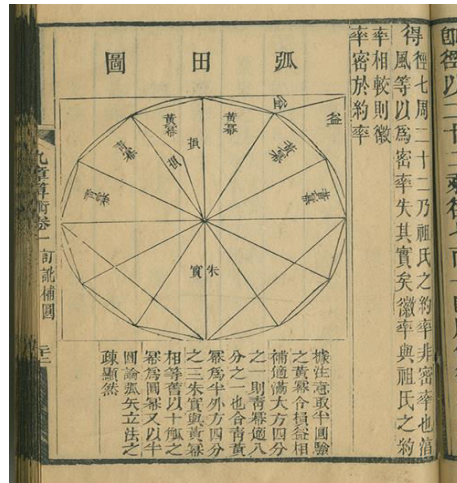 得徑七周二十二乃祖氏之約率非密率也淸
風等以爲密率失其實矣徽率與祖氏之約
率相較則徽
率密於約率
弧田圖
益
益
黃冪
黃冪
損
損
青冪
青冪
青冪
青冪
朱實
據注意取半圓驗
之黃冪令損益相
補適滿大方四分
之一則青冪適八
分之一也合青黃
冪爲半外方四分
之三朱實與黃冪
相等舊以十觚之
冪爲圓冪又以半
圓論弧矢立法之
疎顯然
九章算術卷一 訂訛補圖